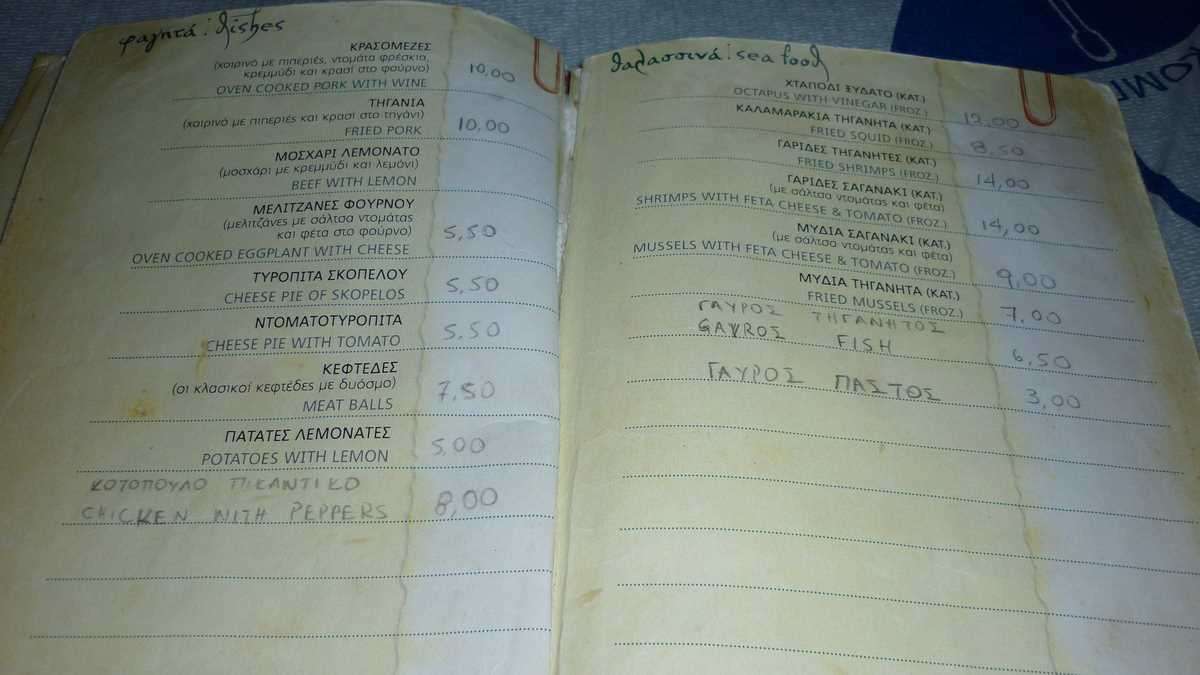 φαγητά : dishes
ΚΡΑΣΟΜΕΖΕΣ
(χοιρινό με πιπεριές, ντομάτα φρέσκια,
κρεμμύδι και κρασί στο φούρνο)
OVEN COOKED PORK WITH WINE 10,00
ΤΗΓΑΝΙΑ
(χοιρινό με πιπεριές και κρασί στο τηγάνι)
FRIED PORK 10,00
ΜΟΣΧΑΡΙ ΛΕΜΟΝΑΤΟ
(μοσχάρι με κρεμμύδι και λεμόνι)
BEEF WITH LEMON
ΜΕΛΙΤΖΑΝΕΣ ΦΟΥΡΝΟΥ
(μελιτζάνες με σάλτσα ντομάτας
και φέτα στο φούρνο) 5,50
OVEN COOKED EGGPLANT WITH CHEESE
ΤΥΡΟΠΙΤΑ ΣΚΟΠΕΛΟΥ
CHEESE PIE OF SKOPELOS 5,50
ΝΤΟΜΑΤΟΤΥΡΟΠΙΤΑ
CHEESE PIE WITH TOMATO 5,50
ΚΕΦΤΕΔΕΣ
(οι κλασικοί κεφτέδες με δυόσμο)
MEAT BALLS 7,50
ΠΑΤΑΤΕΣ ΛΕΜΟΝΑΤΕΣ
POTATOES WITH LEMON 5,00
ΚΟΤΟΠΟΥΛΟ ΠΙΚΑΝΤΙΚΟ
CHICKEN WITH PEPPERS 8,00
θαλασσινά : sea food
ΧΤΑΠΟΔΙ ΞΥΔΑΤΟ (ΚΑΤ.)
OCTAPUS WITH VINEGAR (FROZ.) 12,00
ΚΑΛΑΜΑΡΑΚΙΑ ΤΗΓΑΝΗΤΑ (ΚΑΤ.)
FRIED SQUID (FROZ.) 8,50
ΓΑΡΙΔΕΣ ΤΗΓΑΝΗΤΕΣ (ΚΑΤ.)
FRIED SHRIMPS (FROZ.) 14,00
ΓΑΡΙΔΕΣ ΣΑΓΑΝΑΚΙ (ΚΑΤ.)
(με σάλτσα ντομάτας και φέτα)
SHRIMPS WITH FETA CHEESE & TOMATO (FROZ.) 14,00
ΜΥΔΙΑ ΣΑΓΑΝΑΚΙ (ΚΑΤ.)
(με σάλτσα ντομάτας και φέτα)
MUSSELS WITH FETA CHEESE & TOMATO (FROZ.) 9,00
ΜΥΔΙΑ ΤΗΓΑΝΗΤΑ (ΚΑΤ.)
FRIED MUSSELS (FROZ.) 7,00
ΓΑΥΡΟΣ ΤΗΓΑΝΗΤΟΣ
GAVROS FISH 6,50
ΓΑΥΡΟΣ ΠΑΣΤΟΣ 3,00